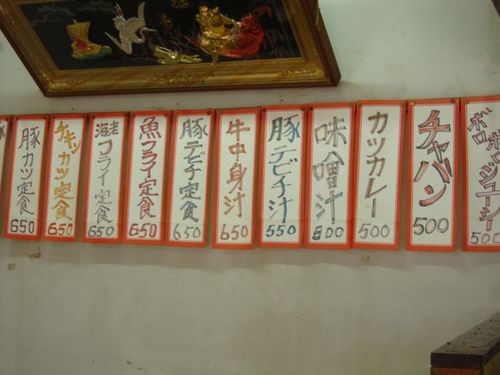 豚カツ定食
650
チキンカツ定食
650
海老フライ定食
650
魚フライ定食
650
豚デビチ定食
650
牛中身汁
650
豚デビチ汁
550
味噌汁
カツカレー
500
チャハン
500
ボロボロジューシー
500